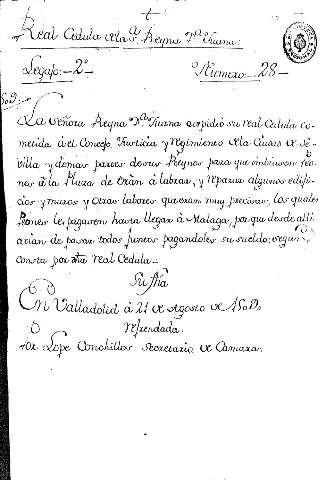 Real Cedula de la S.ª Reyna D.ª Juana.
Legajo-2º Numero-28-
1509.
La Señora Reyna D.ª Juana expidió su real Cedula co-
metida à el Concejo, Justicia y regimiento de la Ciuda de Se-
villa y demas partes de sus Reynos para que imbiasen Peo-
nes à la Plaza de Oràn à labrar, y reparar algunos edifi-
cios y muros y otras labores que eran muy precisas, los quales
Peones les pagasen hasta llegar à Malaga, porque desde alli
avian de pasar todos juntos pagandoles su sueldo: segun
consta por dha real Cedula.
Su fha
En Valladolid à 21 de Agosto de 1509.
refrendada.
Por Lope Conchillos Secretario de Camara.